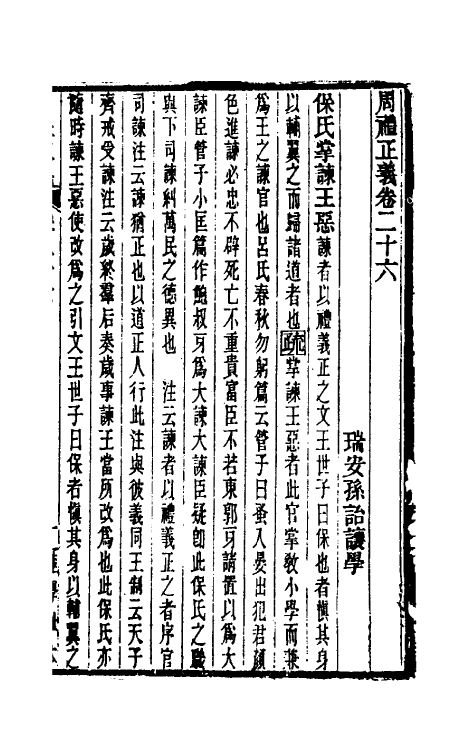 周禮正義卷二十六
瑞安孫詒讓學
保氏掌諫王惡諫者以禮義正之文王世子曰保也者慎其身
以輔翼之而歸諸道者也疏掌諫王惡者此官掌敎小學而兼
爲王之諫官也呂氏春秋勿躬篇云管子曰蚤入晏出犯君顔
色進諫必忠不辟死亡不重貴富臣不若東郭牙請置以爲大
諫臣管子小匡篇作鮑叔牙爲大諫大諫臣疑卽此保氏之職
與下司諫糾萬民之德異也　注云諫者以禮義正之者序官
司諫注云諫猶正也以道正人行此注與彼義同王制云天子
齊戒受諫注云歲終羣后奏歲事諫王當所改爲也此保氏亦
隨時諫王惡使改爲之引文王世子曰保者愼其身以輔翼之